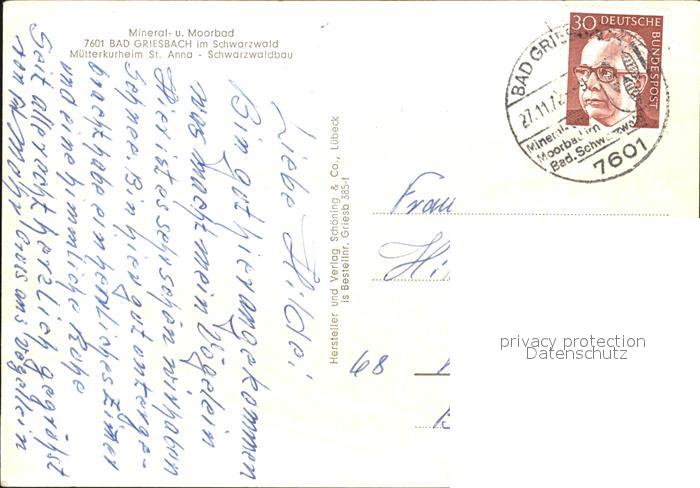 Mineral- u. Moorbad
7601 BAD GRIESBACH im Schwarzwald
Mütterkurheim St. Anna - Schwarzwaldbau
Liebe Hilde!
Bin gut hier angekommen
was macht mein Vögelein
Hier ist es sehr schön wir haben
Schnee. Bin hier gut unterge-
bracht habe ein herrliches Zimmer
und eine himmliche Ruhe
Seit alle recht herzlich gegrüßt
von
Hersteller und Verlag Schöning & Co., Lübeck
is Bestellnr. Griesb 385-1
30 DEUTSCHE BUNDESPOST
BAD GRIESBACH
27.11.72
Mineral-
Moorbad im
Bad. Schwarzwald
7601
Frau
Hi
68
privacy protection
Datenschutz